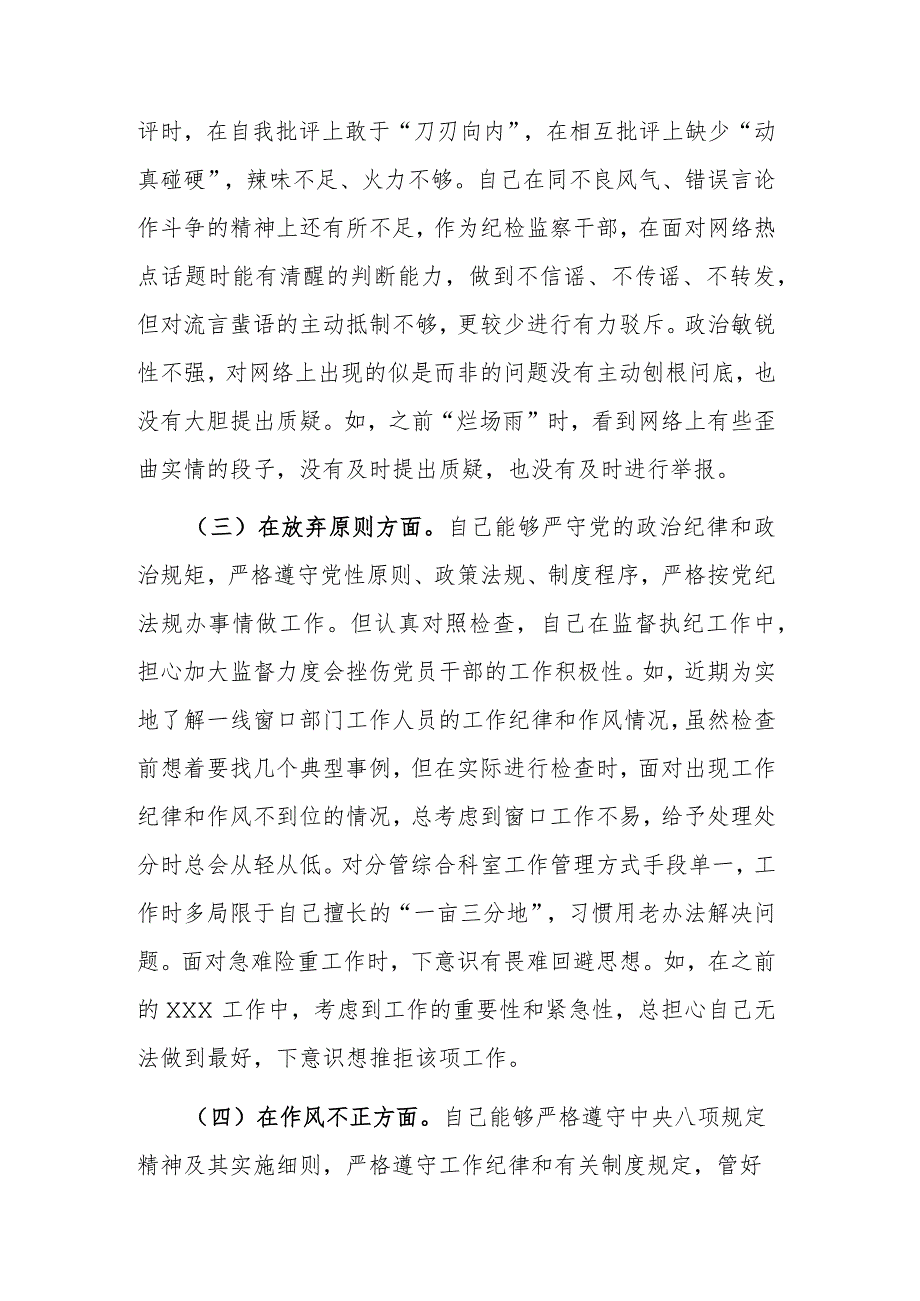 评时，在自我批评上敢于“刀刃向内”，在相互批评上缺少“动
真碰硬”，辣味不足、火力不够。自己在同不良风气、错误言论
作斗争的精神上还有所不足，作为纪检监察干部，在面对网络热
点话题时能有清醒的判断能力，做到不信谣、不传谣、不转发，
但对流言蜚语的主动抵制不够，更较少进行有力驳斥。政治敏锐
性不强，对网络上出现的似是而非的问题没有主动刨根问底，也
没有大胆提出质疑。如，之前“烂场雨”时，看到网络上有些歪
曲实情的段子，没有及时提出质疑，也没有及时进行举报。
（三）在放弃原则方面。自己能够严守党的政治纪律和政
治规矩，严格遵守党性原则、政策法规、制度程序，严格按党纪
法规办事情做工作。但认真对照检查，自己在监督执纪工作中，
担心加大监督力度会挫伤党员干部的工作积极性。如，近期为实
地了解一线窗口部门工作人员的工作纪律和作风情况，虽然检查
前想着要找几个典型事例，但在实际进行检查时，面对出现工作
纪律和作风不到位的情况，总考虑到窗口工作不易，给予处理处
分时总会从轻从低。对分管综合科室工作管理方式手段单一，工
作时多局限于自己擅长的“一亩三分地”，习惯用老办法解决问
题。面对急难险重工作时，下意识有畏难回避思想。如，在之前
的 XXX 工作中，考虑到工作的重要性和紧急性，总担心自己无
法做到最好，下意识想推拒该项工作。
（四）在作风不正方面。自己能够严格遵守中央八项规定
精神及其实施细则，严格遵守工作纪律和有关制度规定，管好